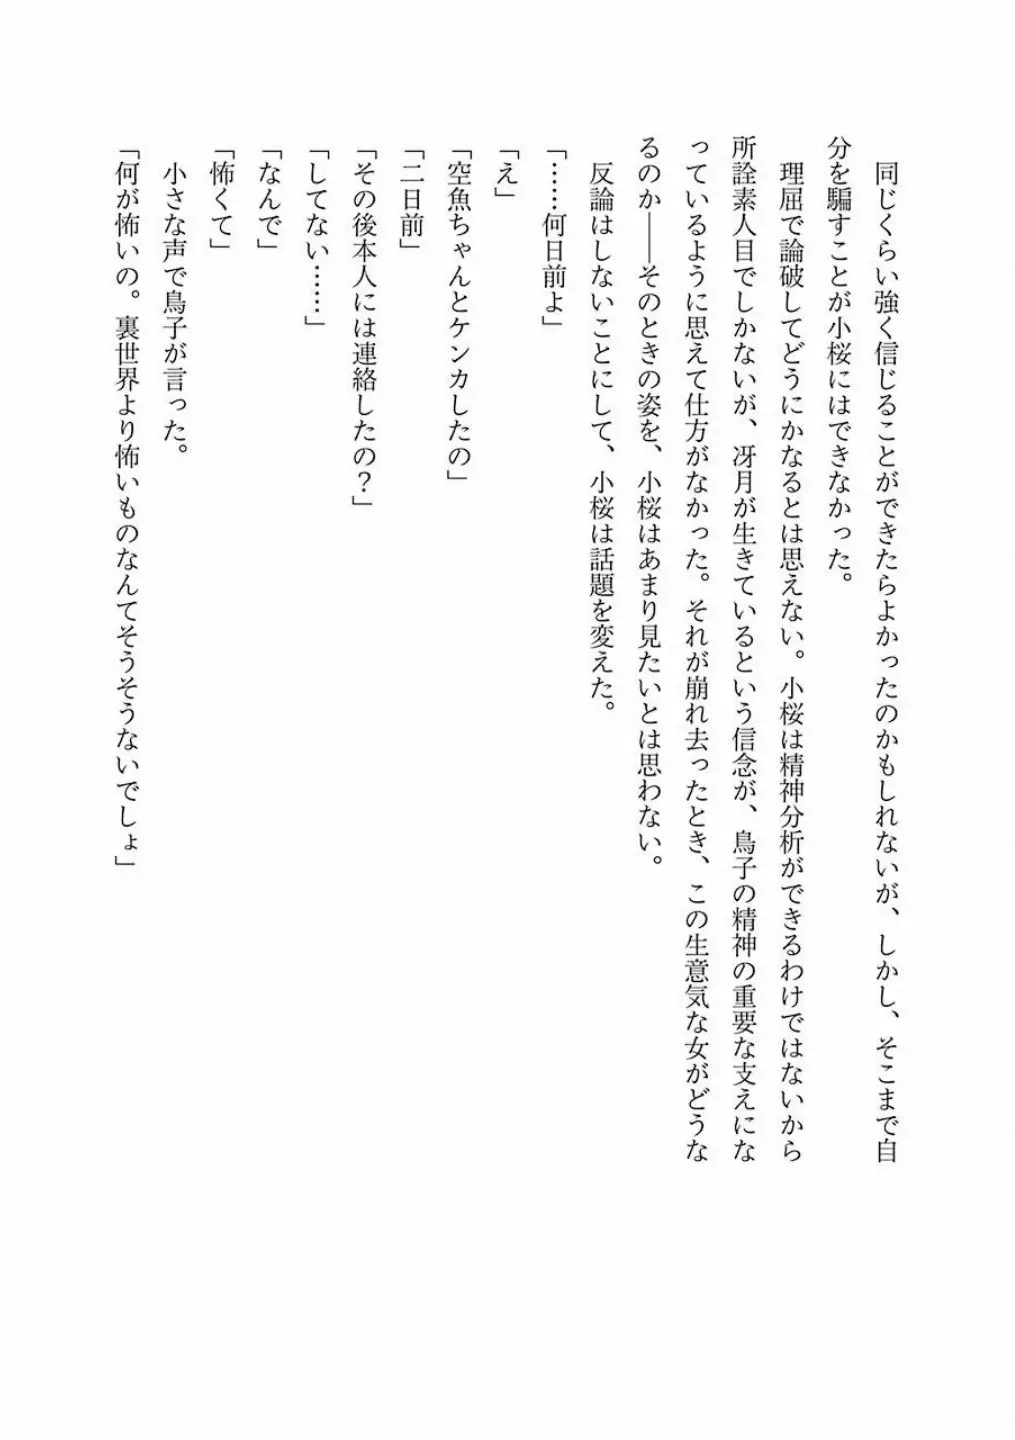 同じくらい強く信じることができたらよかったのかもしれないが、しかし、そこまで自
分を騙すことが小桜にはできなかった。
理屈で論破してどうにかなるとは思えない。小桜は精神分析ができるわけではないから
所詮素人目でしかないが、冴月が生きているという信念が、鳥子の精神の重要な支えにな
っているように思えて仕方がなかった。それが崩れ去ったとき、この生意気な女がどうな
るのか――そのときの姿を、小桜はあまり見たいとは思わない。
反論はしないことにして、小桜は話題を変えた。
「……何日前よ」
「え」
「空魚ちゃんとケンカしたの」
「二日前」
「その後本人には連絡したの？」
「してない……」
「なんで」
「怖くて」
小さな声で鳥子が言った。
「何が怖いの。裏世界より怖いものなんてそうそうないでしょ」